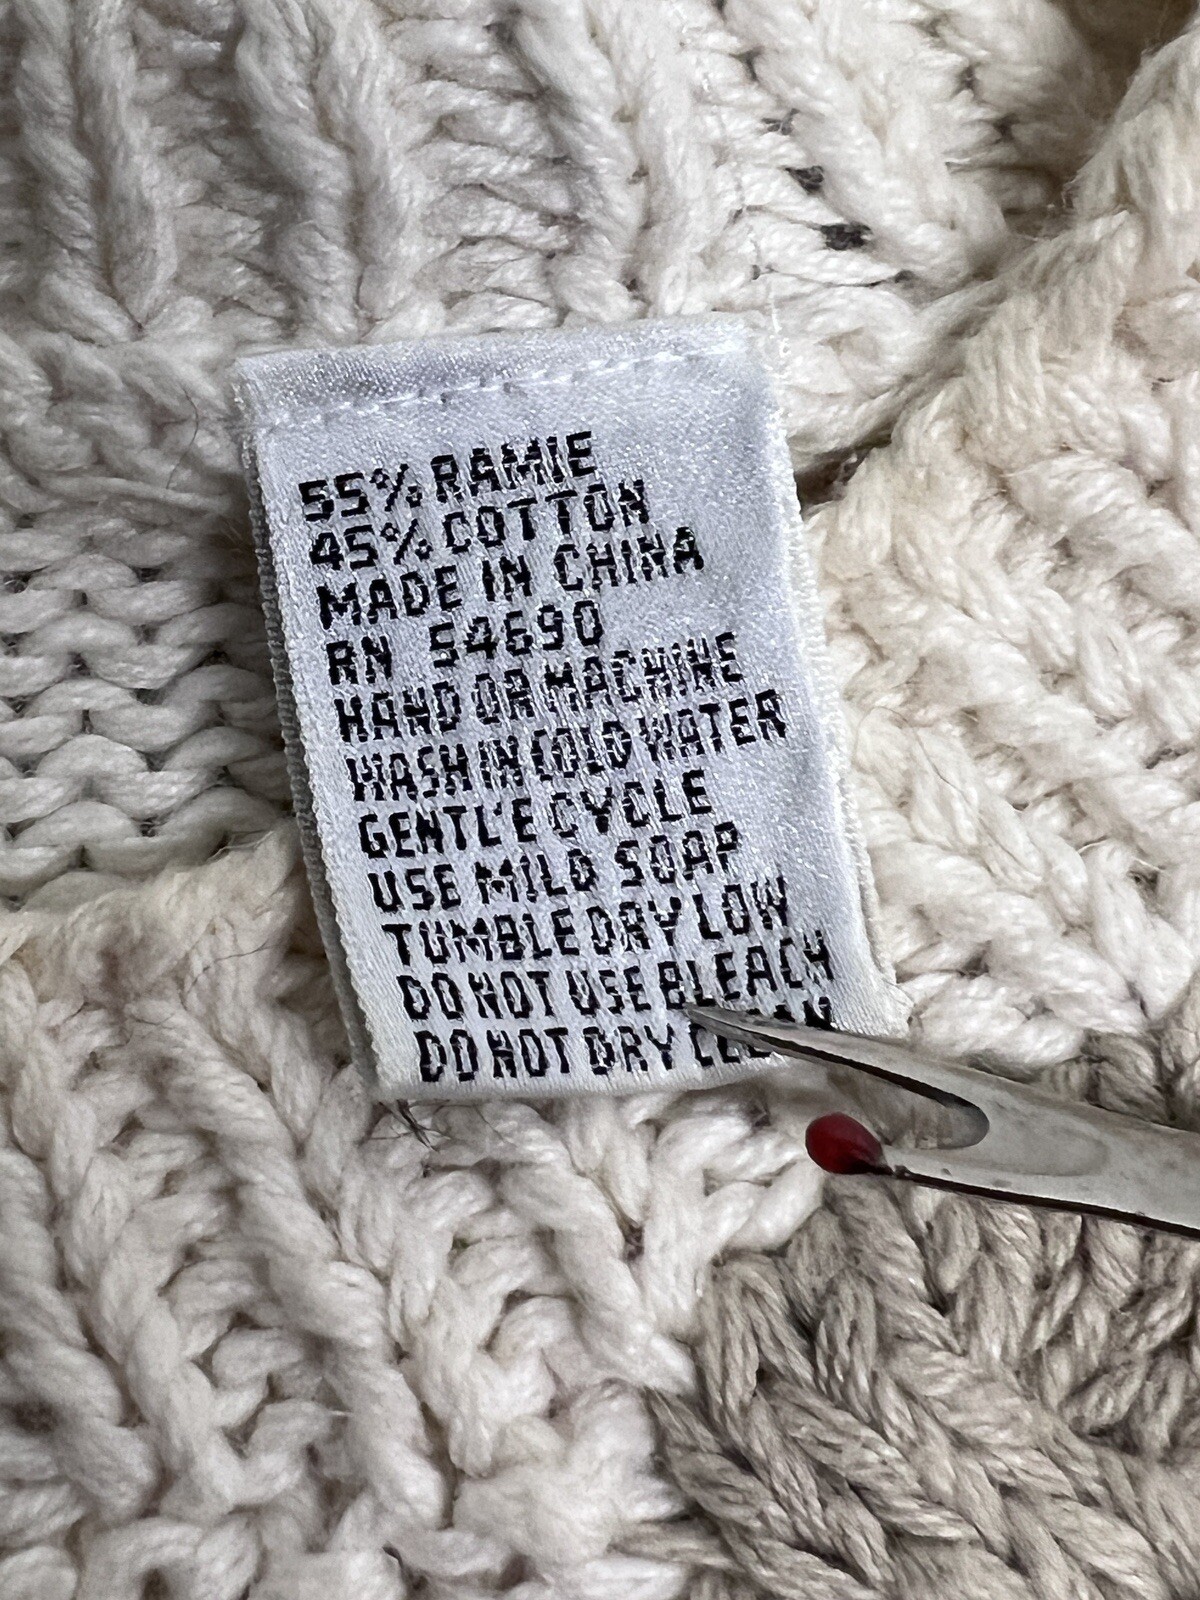 55% RAMIE
45% COTTON
MADE IN CHINA
RN 54690
HAND OR MACHINE
WASH IN COLD WATER
GENTL'E CYCLE
USE MILD SOAP
TUMBLE DRY LOW
DO NOT USE BLEACH
DO NOT DRY CLEAN